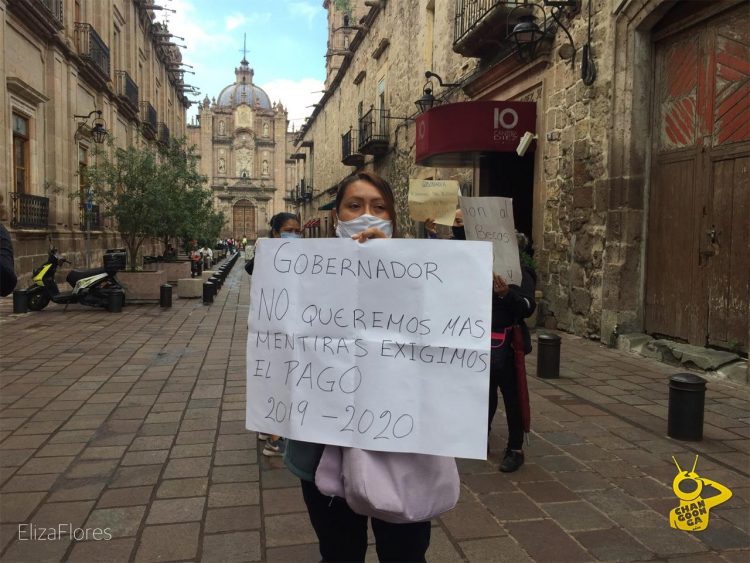 GOBERNADOR
NO QUEREMOS MAS
MENTIRAS EXIGIMOS
EL PAGO
2019-2020
10
Becas
ElizaFlores
CHAN
GOON
GA